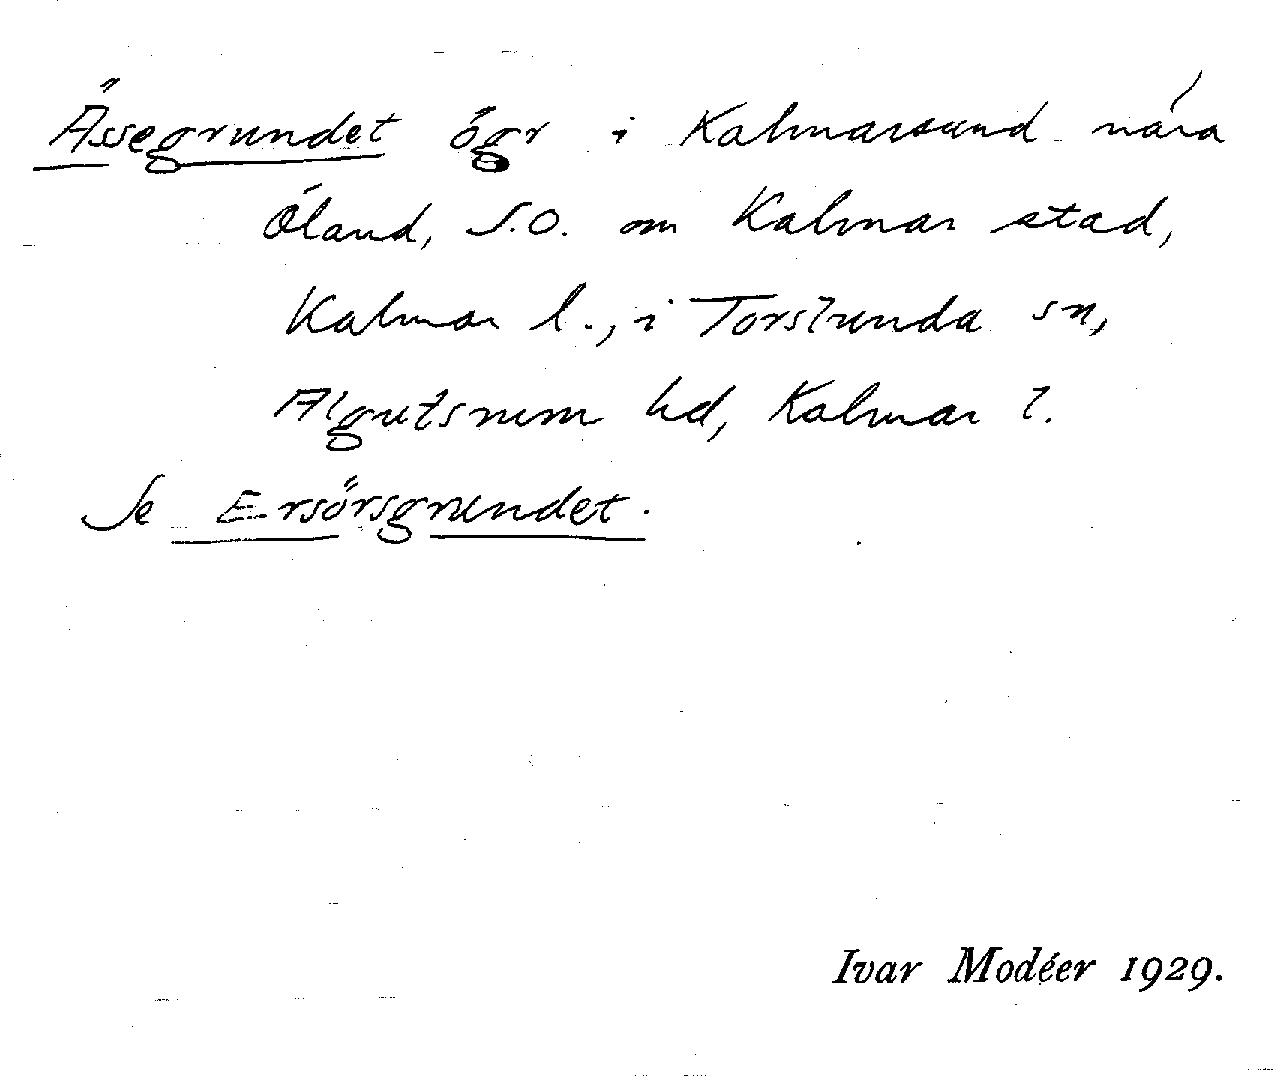 Ässegrundet ögr i Kalmarsund nära
Öland, S.O. om Kalmar stad,
Kalmar l., i Torslunda sn,
Algutsrum hd, Kalmar l.
Se Ersörsgrundet.
Ivar Modéer 1929.